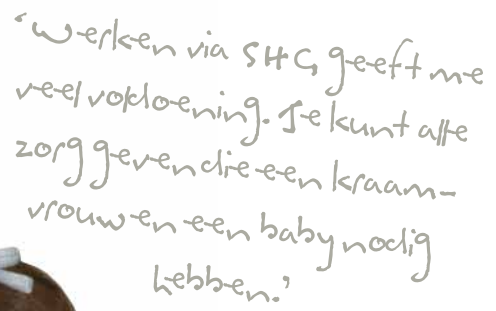 ‘Werken via SHG geeft me
veel voldoening. Je kunt alle
zorg geven die een kraam-
vrouw en een baby nodig
hebben.’